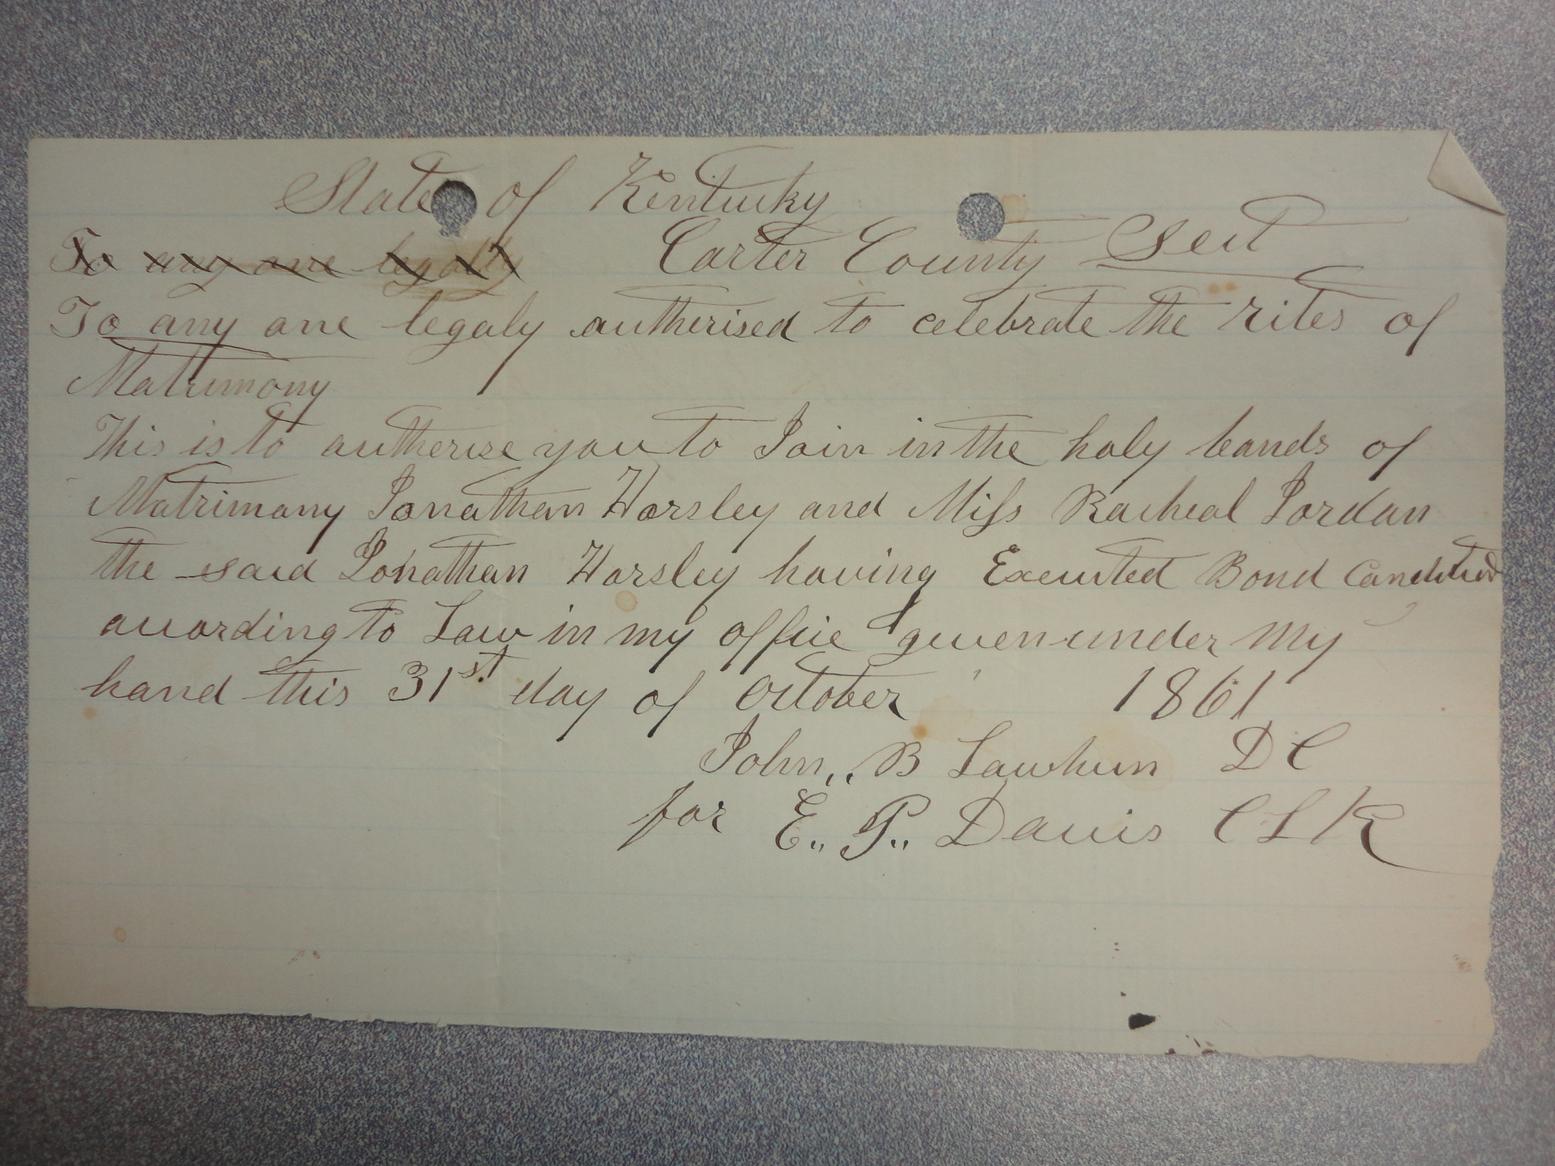 State of Kentucky
To any one legally Carter County Sct
To any one legaly autherised to celebrate the rites of
Matrimony
This is to autherise you to Join in the holy bands of
Matrimony Jonathan Horsley and Miss Racheal Jordan
the said Jonathan Horsley having Executed Bond
according to Law in my office given under my
hand this 31st day of October 1861
John B Lawhun DC
for E. P. Davis CLK